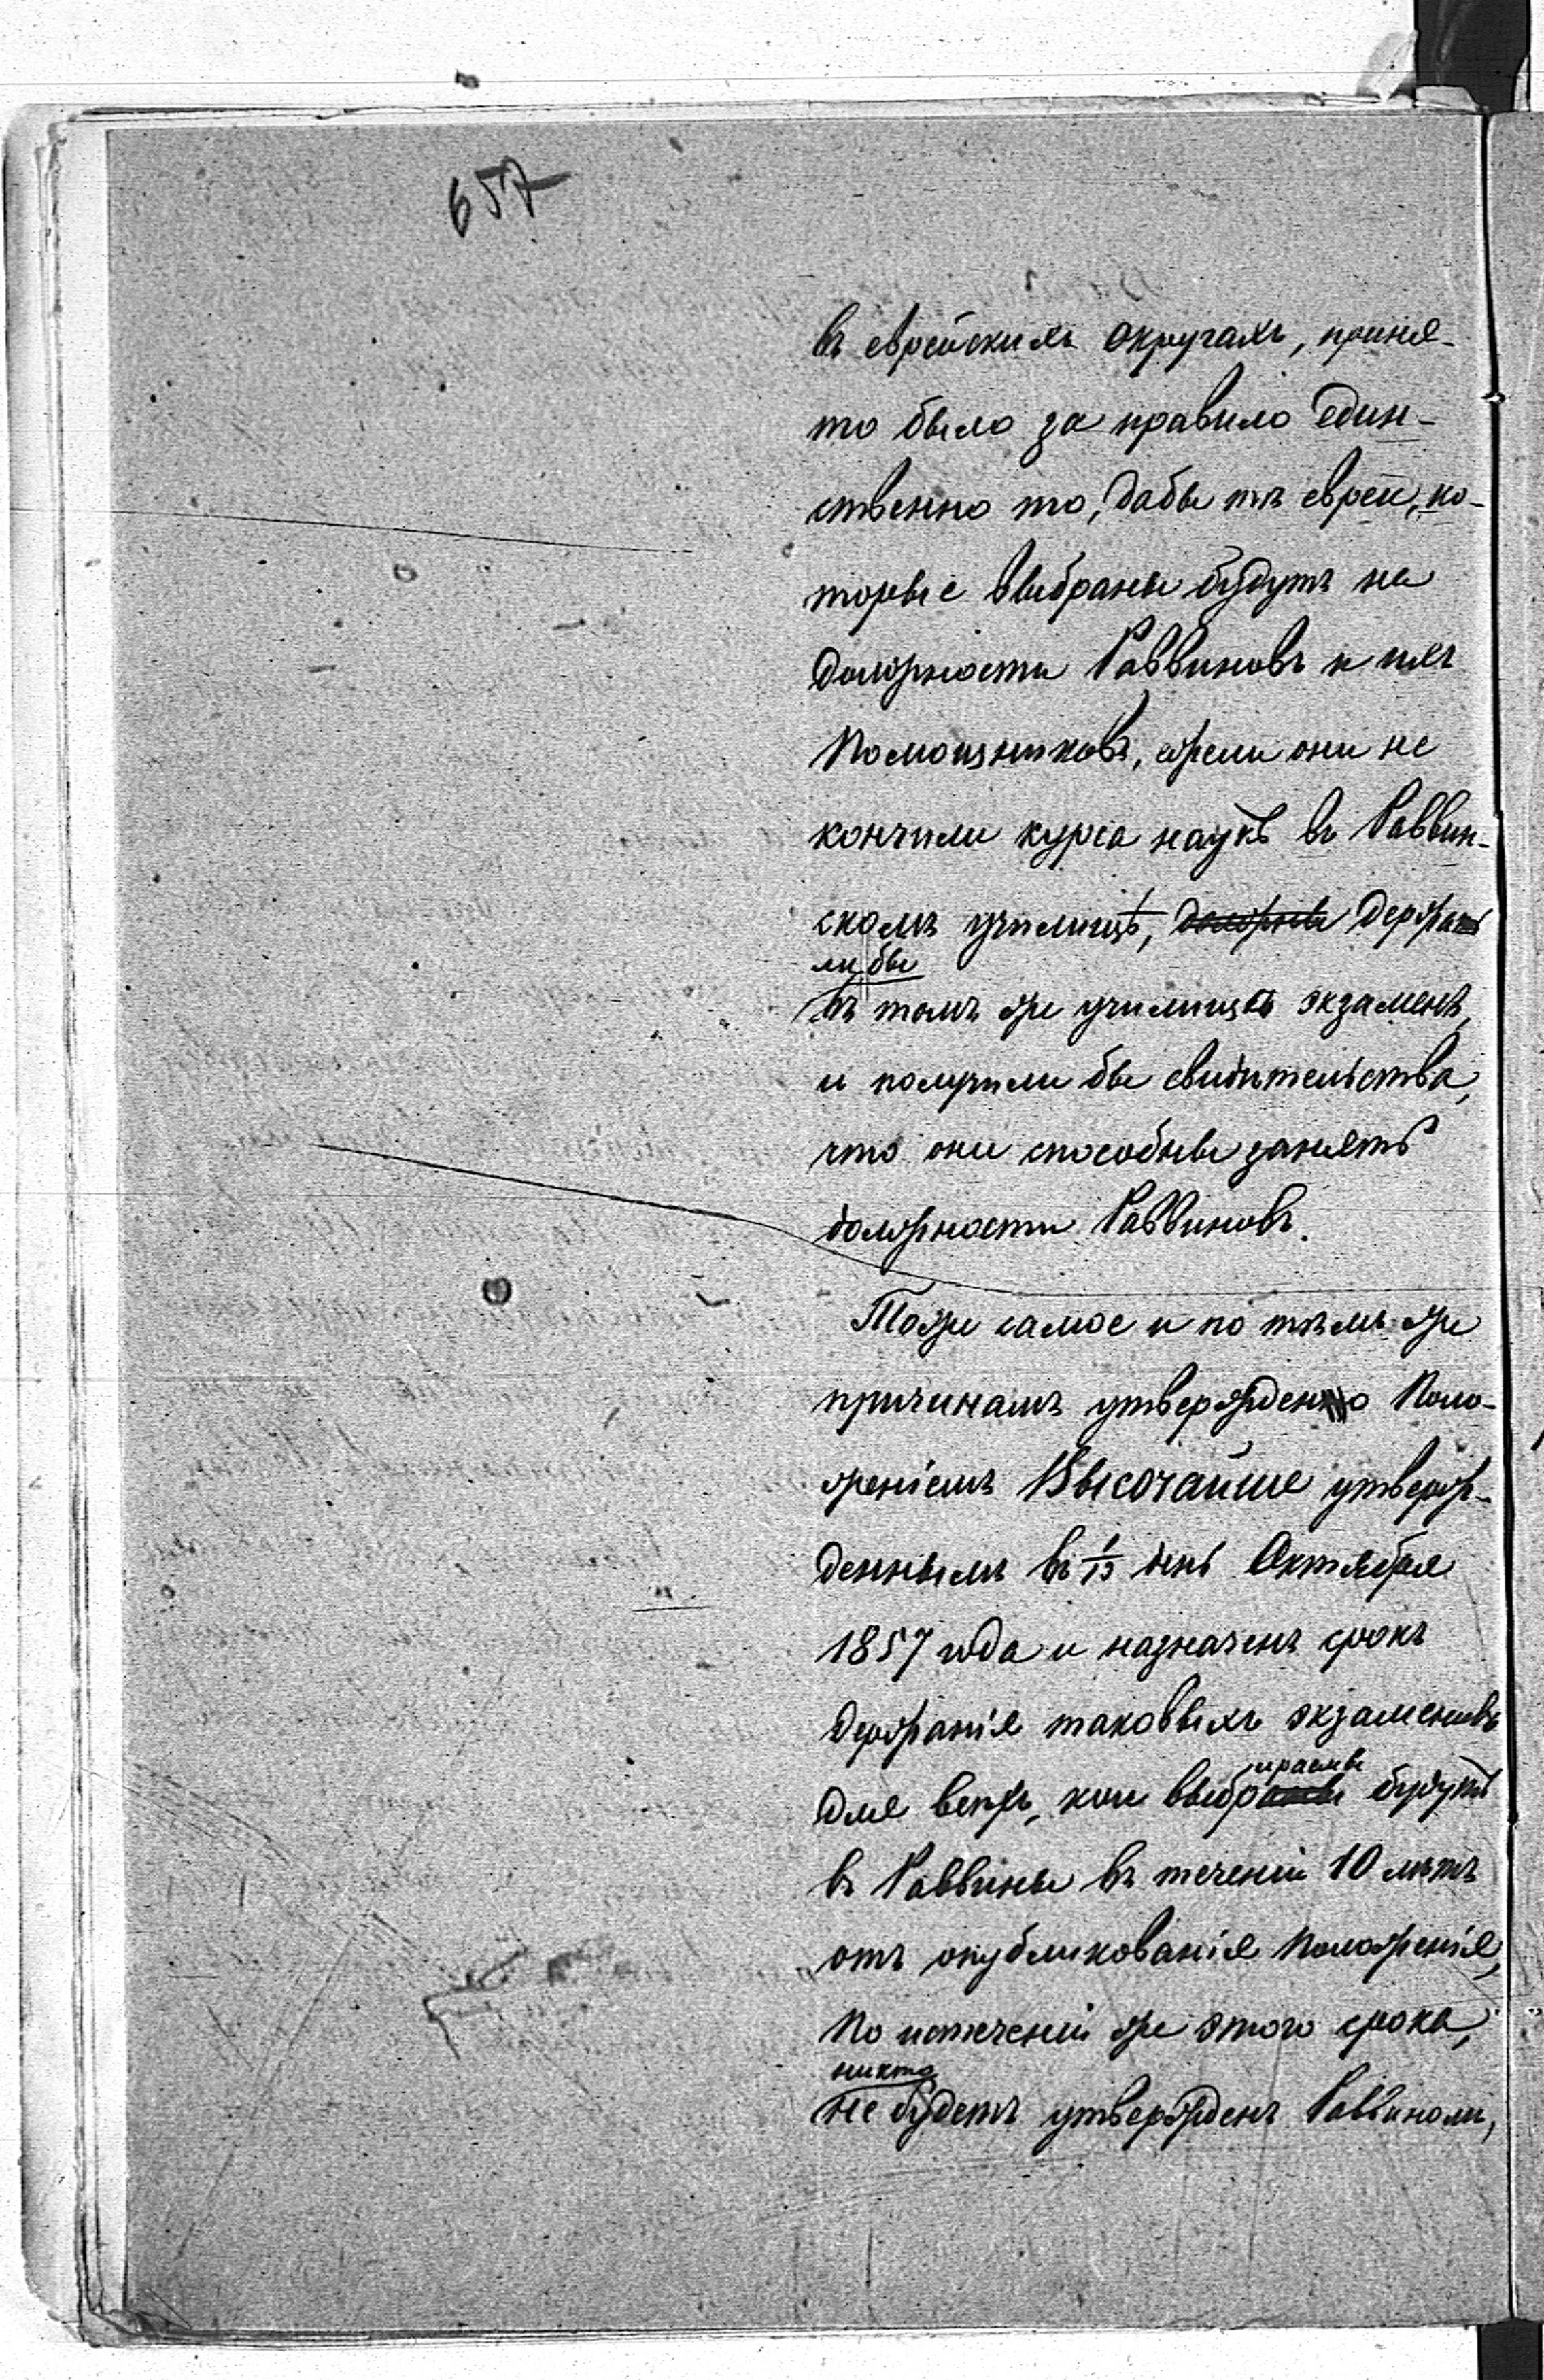 657
въ еврейскихъ округахъ, приня-
то было за правило един-
ственно то, дабы тѣ евреи, ко-
торые выбраны будутъ на
должности Раввиновъ и ихъ
Помощниковъ, ежели они не
кончили курса наукъ въ Раввин-
скомъ училищѣ, должны держа
ли бы
въ томъ же училищѣ экзаменъ,
и получили бы свидѣтельства,
что они способны занять
должности Раввиновъ.
Тоже самое и по тѣмъ же
причинамъ утверждено Поло-
женіемъ Высочайше утверж-
деннымъ въ 1/13 день Октября
1857 года и назначенъ срокъ
держанія таковыхъ экзаменовъ
ираемы
для всѣхъ, кои выбраны будутъ
въ Раввины въ теченіи 10 лѣтъ
отъ опубликованія Положенія,
По истеченіи же этого срока,
никто
не будетъ утвержденъ Раввиномъ,